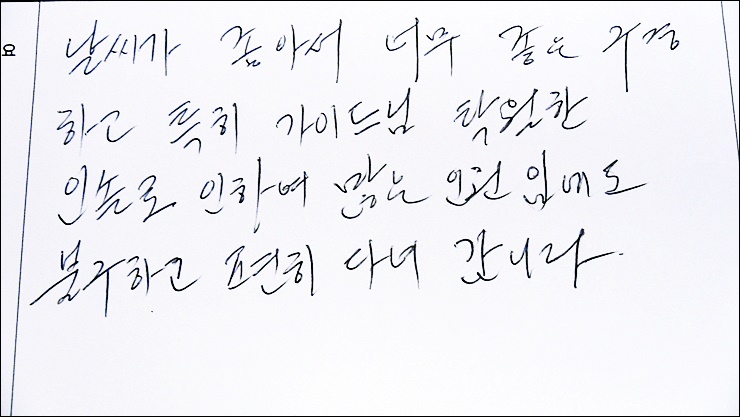 요
날씨가 좋아서 너무 좋은 구경
하고 특히 가이드님 탁월한
인솔로 인하여 많은 인원 임에도
불구하고 편히 다녀 갑니다.